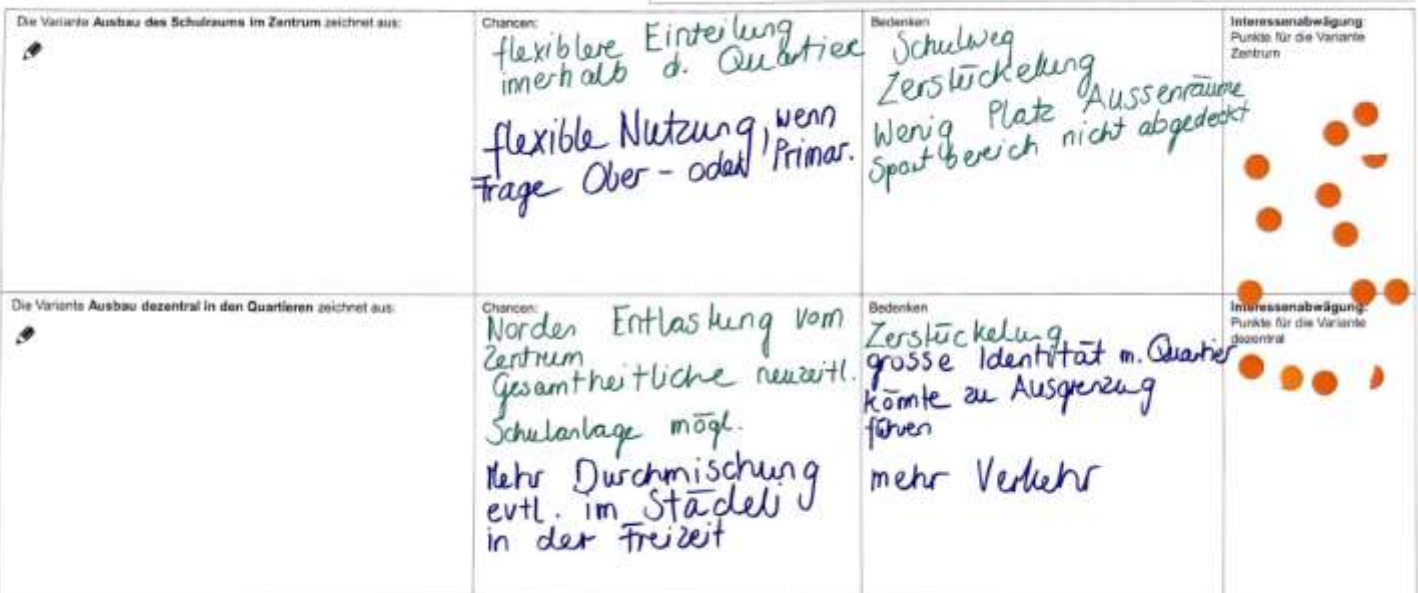 Die Variante Ausbau des Schulraums im Zentrum zeichnet aus:
Chancen:
flexiblere Einteilung
innerhalb d. Quartier
flexible Nutzung, wenn
Frage Ober- oder Primar.
Bedenken
Schulweg
Zerstückelung
Wenig Platz Aussenräume
Sportbereich nicht abgedeckt
Interessenabwägung:
Punkte für die Variante
Zentrum
Die Variante Ausbau dezentral in den Quartieren zeichnet aus:
Chancen:
Norden Entlastung vom
Zentrum
Gesamtheitliche neuzeitl.
Schulanlage mögl.
Mehr Durchmischung
evtl. im Städeli
in der Freizeit
Bedenken
Zerstückelung
grosse Identität m. Quartier
könnte zu Ausgrenzung
führen
mehr Verkehr
Interessenabwägung:
Punkte für die Variante
dezentral